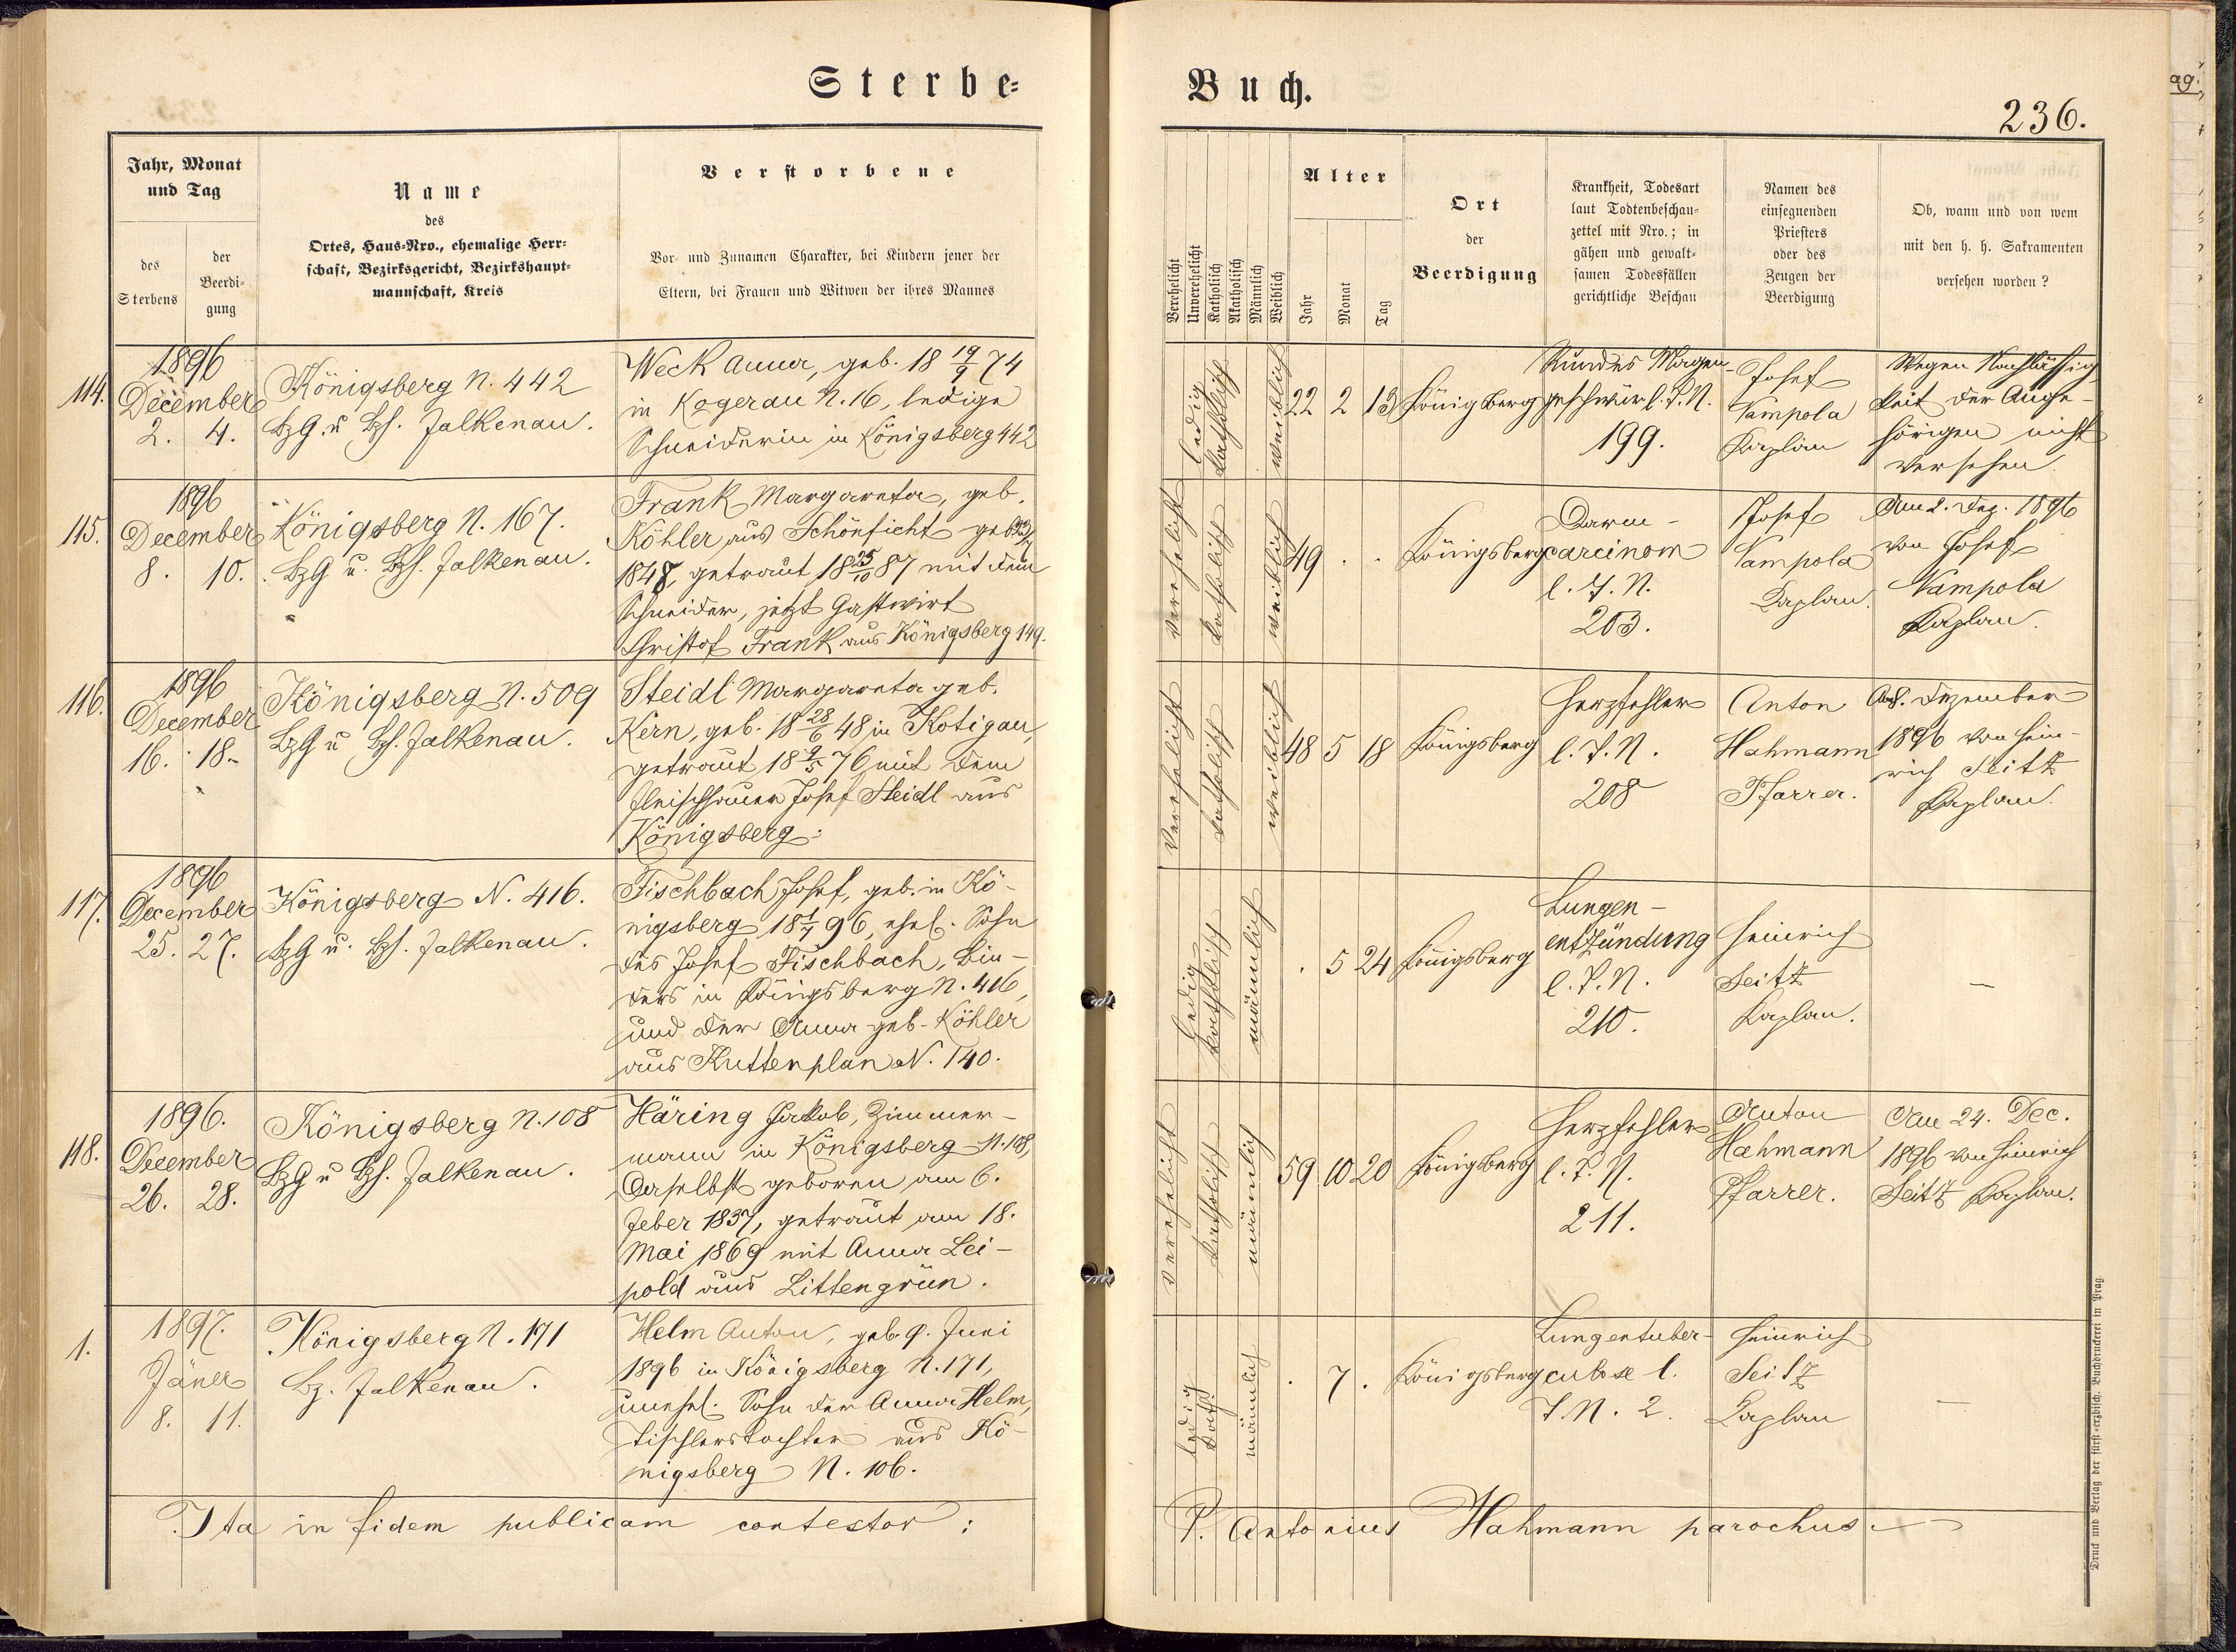 Sterbe-
Buch.
236.
Jahr, Monat
und Tag
des
Sterbens
der
Beerdi-
gung
Name
des
Ortes, Haus-Nro., ehemalige Herr-
schaft, Bezirksgericht, Bezirkshaupt-
mannschaft, Kreis
Verstorbene
Vor- und Zunamen Charakter, bei Kindern jener der
Eltern, bei Frauen und Witwen der ihres Mannes
Verehelicht
Unverehelicht
Katholisch
Akatholisch
Männlich
Weiblich
Alter
Jahr
Monat
Tag
Ort
der
Beerdigung
Krankheit, Todesart
laut Todtenbeschau-
zettel mit Nro.; in
gähen und gewalt-
samen Todesfällen
gerichtliche Beschau
Namen des
einsegnenden
Priesters
oder des
Zeugen der
Beerdigung
Ob, wann und von wem
mit den h. h. Sakramenten
versehen worden?
114.
1896
December
2. 4.
Königsberg N. 442
BzG. u Bzh. Falkenau.
Weck Anna, geb. 18 19/9 74
in Kogerau N. 16, ledige
Schneiderin in Königsberg 442
ledig
katholisch
weiblich
22 2 13
Königsberg
Rundes Magen-
geschwür l. T. N.
199.
Josef
Vampola
Kaplan
Wegen Nachlässig-
keit der Ange-
hörigen nicht
versehen.
115.
1896
December
8. 10.
Königsberg N. 167.
BzG u. Bzh. Falkenau.
Frank Margareta, geb.
Köhler aus Schönficht geb.
1847, getraut 18 25/10 87 mit dem
Schneider, jetzt Gastwirt
Christof Frank aus Königsberg 149.
verehelicht
katholisch
weiblich
49 . .
Königsberg
Darm-
carcinom
l. T. N.
203.
Josef
Vampola
Kaplan.
Am 2. Dez. 1896
von Josef
Vampola
Kaplan.
116.
1896
December
16. 18.
Königsberg N. 509
BzG u Bzh. Falkenau.
Steidl Margareta geb.
Kern, geb. 18 28/6 48 in Kotigau,
getraut 18 9/5 76 mit dem
Fleischhauer Josef Steidl aus
Königsberg.
verehelicht
katholisch
weiblich
48 5 18
Königsberg
Herzfehler
l. T. N.
208
Anton
Hahmann
Pfarrer.
8. Dezember
1896 von Hein-
rich Seitz
Kaplan.
117.
1896
December
25. 27.
Königsberg N. 416.
BzG u. Bzh. Falkenau.
Fischbach Josef, geb. in Kö-
nigsberg 18 1/7 96, ehel. Sohn
des Josef Fischbach, Bin-
ders in Königsberg N. 416,
und der Anna geb. Köhler
aus Kuttenplan N. 140.
ledig
katholisch
männlich
. 5 24
Königsberg
Lungen-
entzündung
l. T. N.
210.
Heinrich
Seitz
Kaplan.
—
118.
1896.
December
26. 28.
Königsberg N. 108
BzG u Bzh. Falkenau.
Häring Jakob, Zimmer-
mann in Königsberg N. 108,
daselbst geboren am 6.
Feber 1837, getraut am 18.
Mai 1869 mit Anna Lei-
pold aus Littengrün.
verehelicht
katholisch
männlich
59 10 20
Königsberg
Herzfehler
l. T. N.
211.
Anton
Hahmann
Pfarrer.
Am 24. Dec.
1896 von Heinrich
Seitz Kaplan.
1.
1897.
Jäner
8. 11.
Königsberg N. 171
Bz. Falkenau.
Helm Anton, geb. 9. Juni
1896 in Königsberg N. 171,
unehel. Sohn der Anna Helm,
Tischlerstochter aus Kö-
nigsberg N. 106.
ledig
kath.
männlich
. 7 .
Königsberg
Lungentuber-
culose l.
T. N. 2.
Heinrich
Seitz
Kaplan
—
Ita in fidem publicam contestor:
P. Antonius Hahmann parochus.
Druck und Verlag der fürst-erzbisch. Buchdruckerei in Prag.